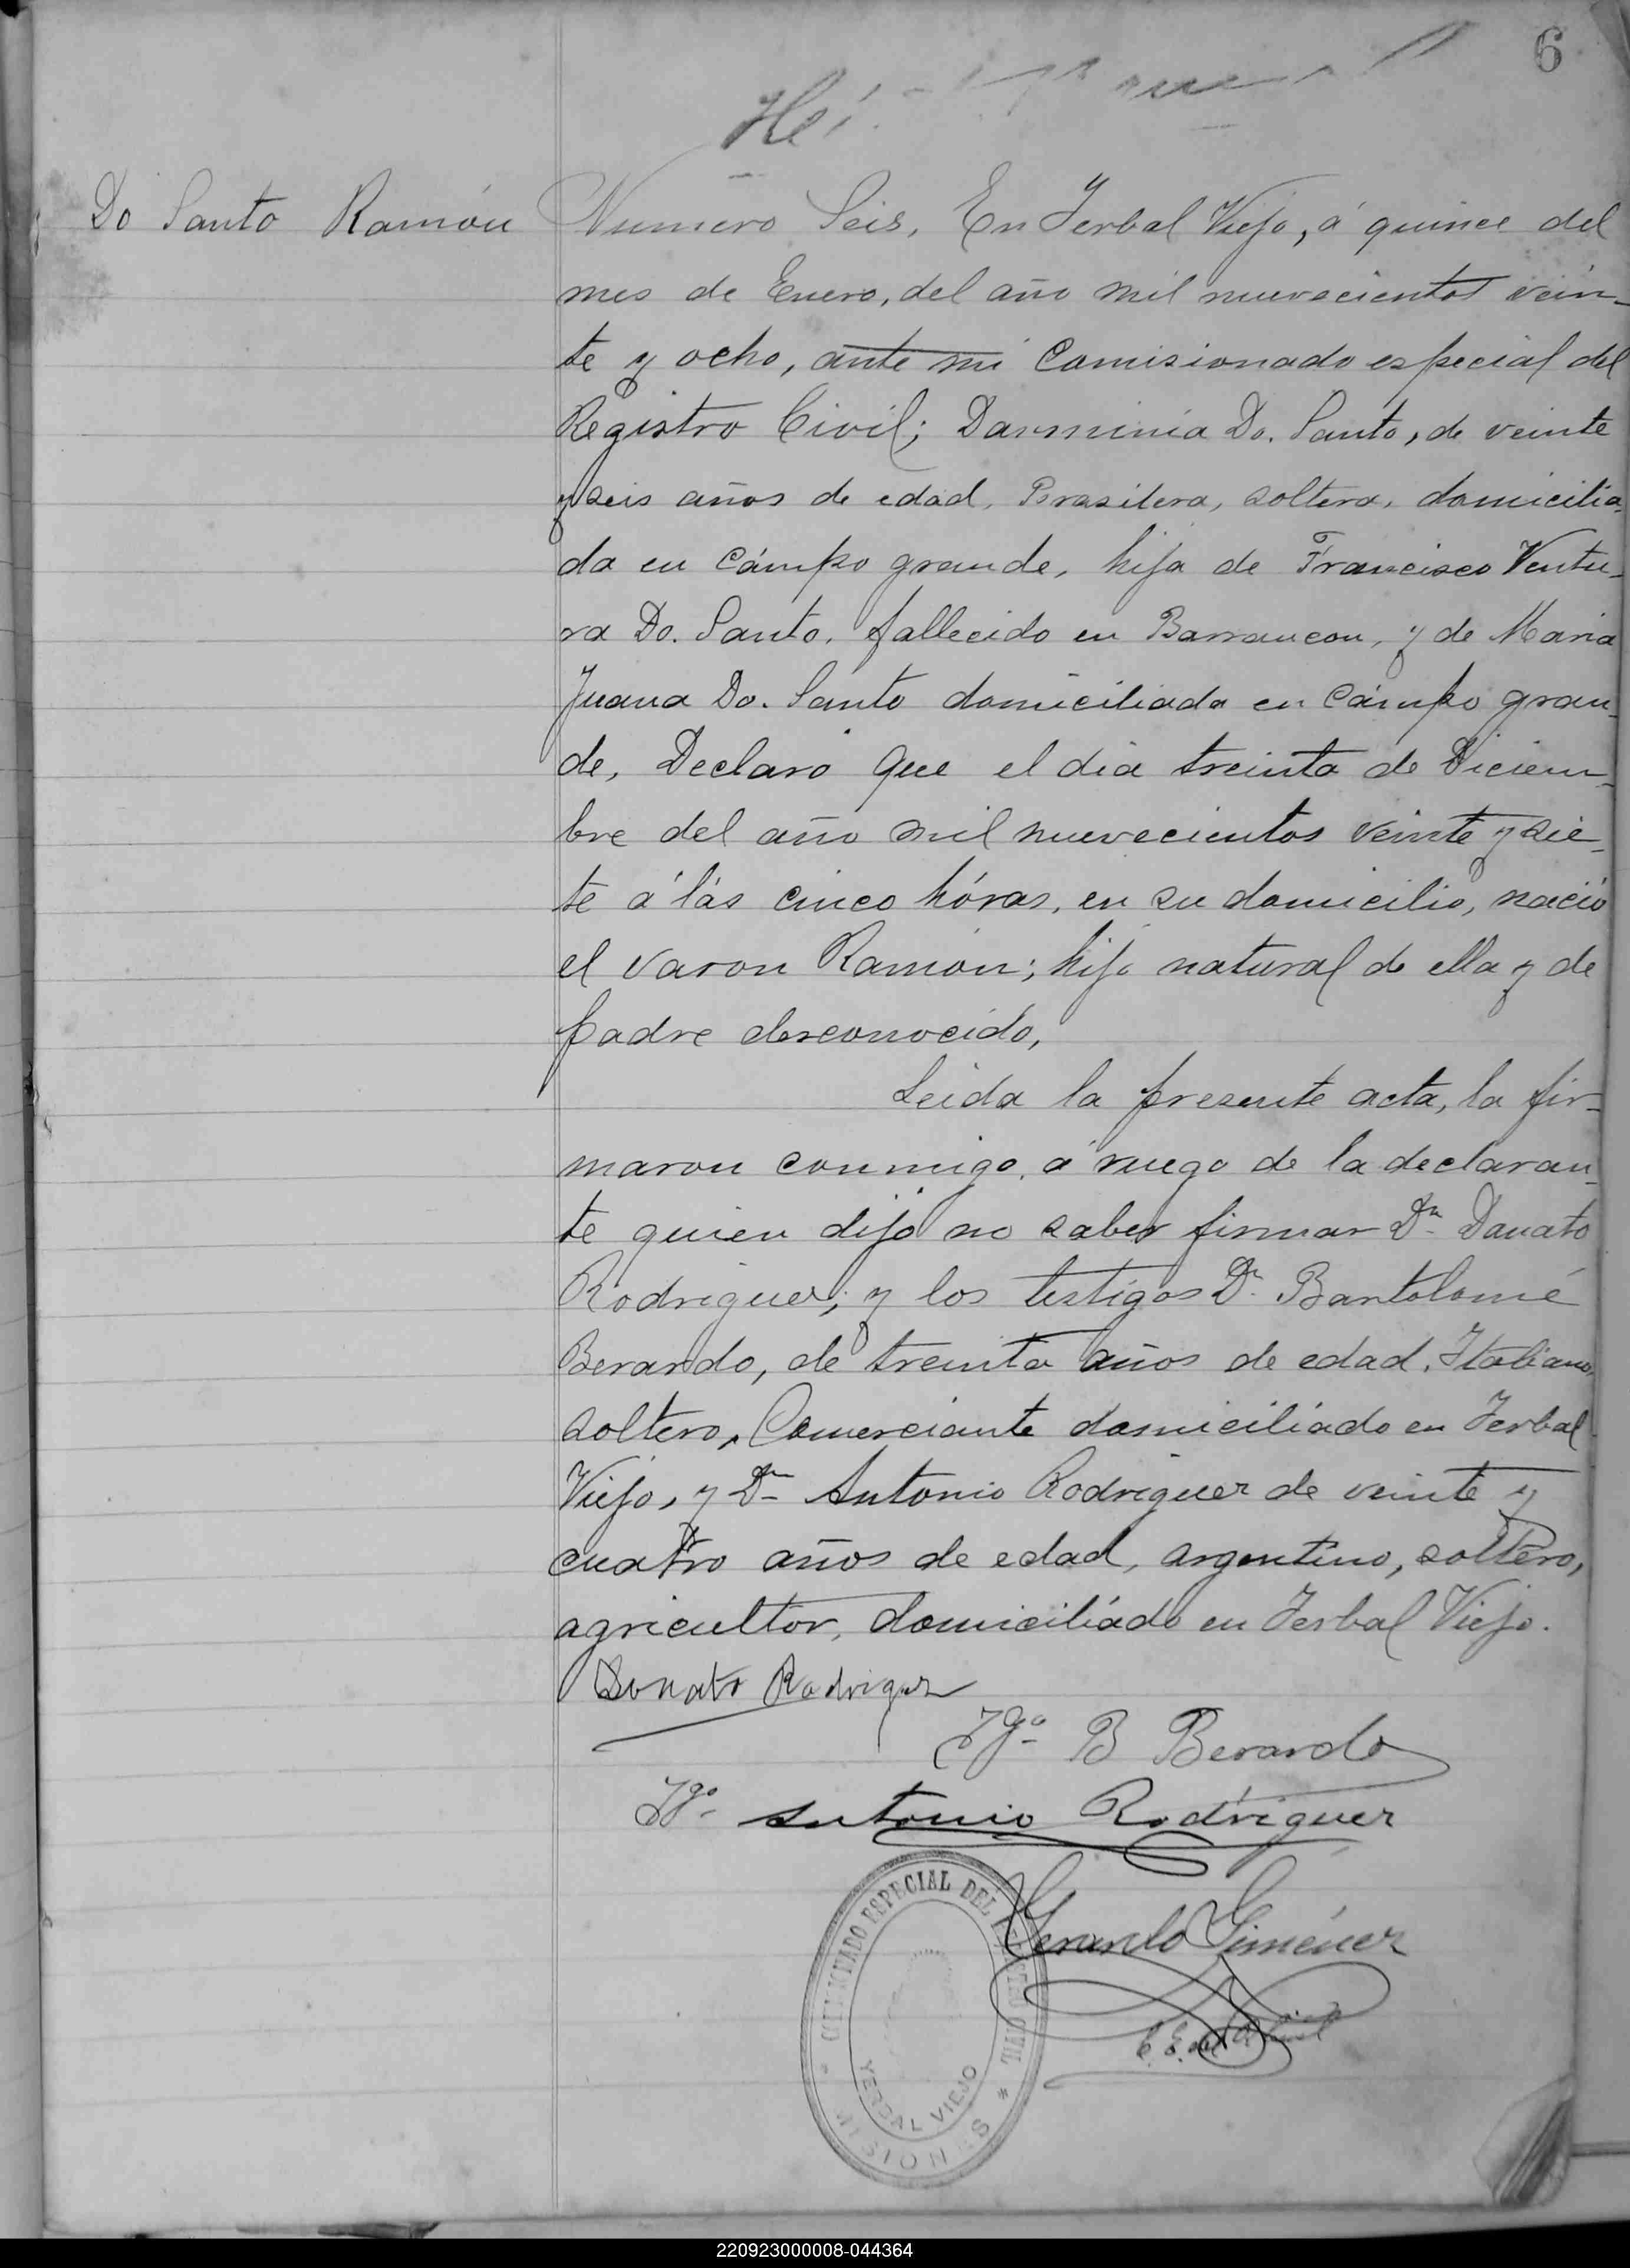 6
Do Santo Ramón
Numero Seis, En Yerbal Viejo, á quince del
mes de Enero, del año mil nuevecientos vein-
te y ocho, ante mi Comisionado especial del
Registro Civil; Darminia Do. Santo, de veinte
y seis años de edad, Brasilera, soltera, domicilia-
da en Cámpo grande, hija de Francisco Ventu-
ra Do. Santo, fallecido en Barrancon, y de Maria
Juana Do. Santo domiciliada en Cámpo gran-
de, Declaró Que el dia treinta de Diciem-
bre del año mil nuevecientos veinte y sie-
te á lás cinco hóras, en su domicilio, nació
el varon Ramón; hijo natural de ella y de
padre desconocido,
Leida la presente acta, la fir-
maron conmigo, á ruego de la declaran-
te quien dijo no saber firmar Dn Danato
Rodriguez; y los testigos Dn Bartolomé
Berardo, de treinta años de edad, Italiano,
soltero, Comerciante domiciliádo en Yerbal
Viejo, y Dn Antonio Rodriguez de veinte y
cuatro años de edad, argentino, soltero,
agricultor, domiciliádo en Yerbal Viejo.
Donato Rodriguez
Tgo B Berardo
Tgo Antonio Rodriguez
COMISIONADO ESPECIAL DEL REGISTRO CIVIL
YERBAL VIEJO
MISIONES
Gerardo Giménez
220923000008-044364